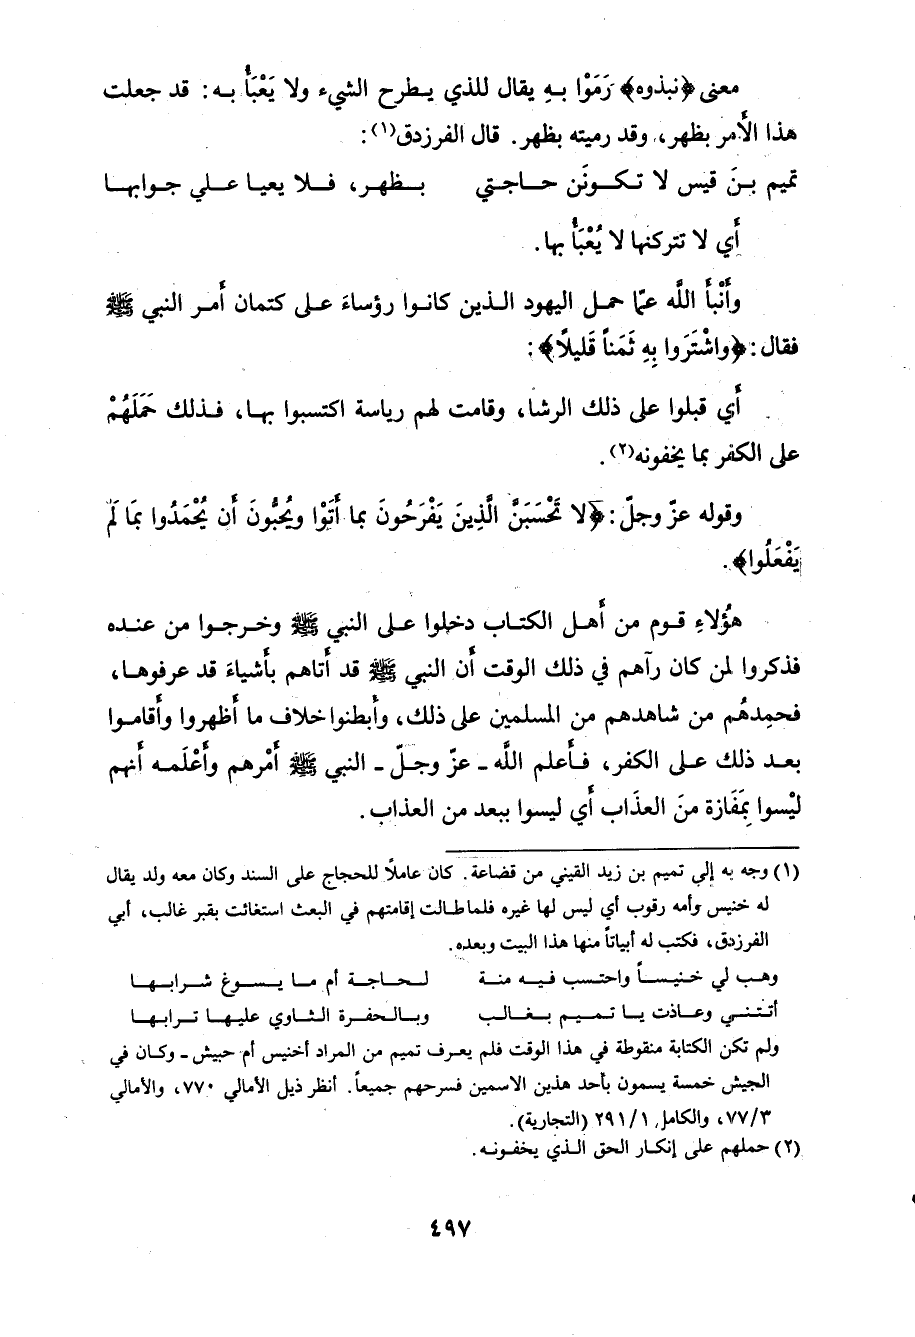 معنى ﴿نبذوه﴾ رَمَوْا بهِ يقال للذي يطرح الشيء ولا يَعْبَأُ به: قد جعلت
هذا الأَمر بظهر، وقد رميته بظهر. قال الفرزدق(١):
تميم بنَ قيس لا تكونَن حاجتي بظهر، فلا يعيا علي جوابها
أَي لا تتركنها لا يُعْبَأُ بها.
وأَنْبأَ اللَّه عمّا حمل اليهود الذين كانوا رؤساءَ على كتمان أَمر النبي ﷺ
فقال: ﴿واشْتَرَوا بِهِ ثَمَناً قَليلاً﴾:
أَي قبلوا على ذلك الرشا، وقامت لهم رياسة اكتسبوا بها، فذلك حَمَلَهُمْ
على الكفر بما يخفونه(٢).
وقوله عزّ وجلّ: ﴿لا تَحْسَبَنَّ الَّذِينَ يَفْرَحُونَ بما أَتَوْا ويُحبُّونَ أَن يُحْمَدُوا بمَا لَم
يَفْعَلُوا﴾.
هؤُلاءِ قوم من أَهل الكتاب دخلوا على النبي ﷺ وخرجوا من عنده
فذكروا لمن كان رآهم في ذلك الوقت أَن النبي ﷺ قد أَتاهم بأَشياءَ قد عرفوها،
فحمِدهُم من شاهدهم من المسلمين على ذلك، وأَبطنوا خلاف ما أَظهروا وأَقاموا
بعد ذلك على الكفر، فأَعلم اللَّه ـ عزّ وجلّ ـ النبي ﷺ أَمْرهم وأَعْلَمه أَنهم
ليْسوا بمَفَازة منَ العذَاب أَي ليسوا ببعد من العذاب.
(١) وجه به إلي تميم بن زيد القيني من قضاعة. كان عاملاً للحجاج على السند وكان معه ولد يقال
له خنيس وأمه رقوب أي ليس لها غيره فلما طالت إقامتهم في البعث استغاثت بقبر غالب، أبي
الفرزدق، فكتب له أبياتاً منها هذا البيت وبعده.
وهب لي خنيساً واحتسب فيه منة لحاجة أم ما يسوغ شرابها
أتتني وعاذت يا تميم بغالب وبالحفرة الثاوي عليها ترابها
ولم تكن الكتابة منقوطة في هذا الوقت فلم يعرف تميم من المراد أخنيس أم حبيش ـ وكان في
الجيش خمسة يسمون بأحد هذين الاسمين فسرحهم جميعاً. أنظر ذيل الأمالي ٧٧٠، والأمالي
٧٧/٣، والكامل ٢٩١/١ (التجارية).
(٢) حملهم على إنكار الحق الذي يخفونه.
٤٩٧